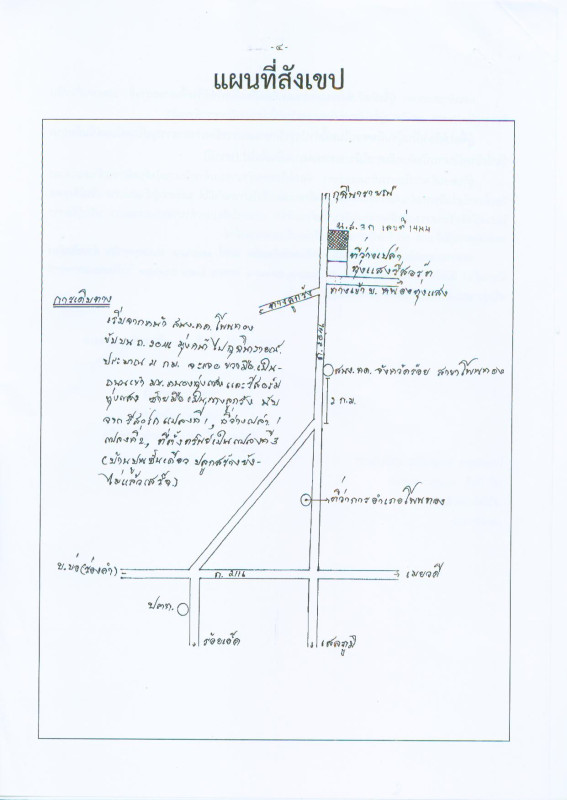 - ๔ -
แผนที่สังเขป
กุฉินารายณ์
น.ส.๓ก เลขที่ ๑๔๔๘
ที่ว่างเปล่า
ทุ่งแสงรีสอร์ต
ทางเข้า บ. หนองทุ่งแสง
ทางลูกรัง
การเดินทาง
เริ่มจากหน้า สนง.ที่ดิน โพนทอง
ขับบน ถ. ๒๐๔๖ มุ่งหน้าไปกุฉินารายณ์
ประมาณ ๓ กม. จะเจอ ขวามือเป็น-
ถนนเข้า บ. หนองทุ่งแสง และรีสอร์ท
ทุ่งแสง ซ้ายมือเป็นทางลูกรัง นับ
จากรีสอร์ท แปลงที่ 1, ที่ว่างเปล่า
แปลงที่ 2, ที่ตั้งทรัพย์เป็นแปลงที่ 3
(บ้านปูนชั้นเดียว ปลูกสร้างยัง-
ไม่แล้วเสร็จ)
ถ. ๒๐๔๖
สนง.ที่ดิน จังหวัดร้อยเอ็ด สาขาโพนทอง
2 ก.ม.
ที่ว่าการอำเภอโพนทอง
บ.บ่อ
ถ. 2116
เมยวดี
ปตท.
ร้อยเอ็ด
เสลภูมิ